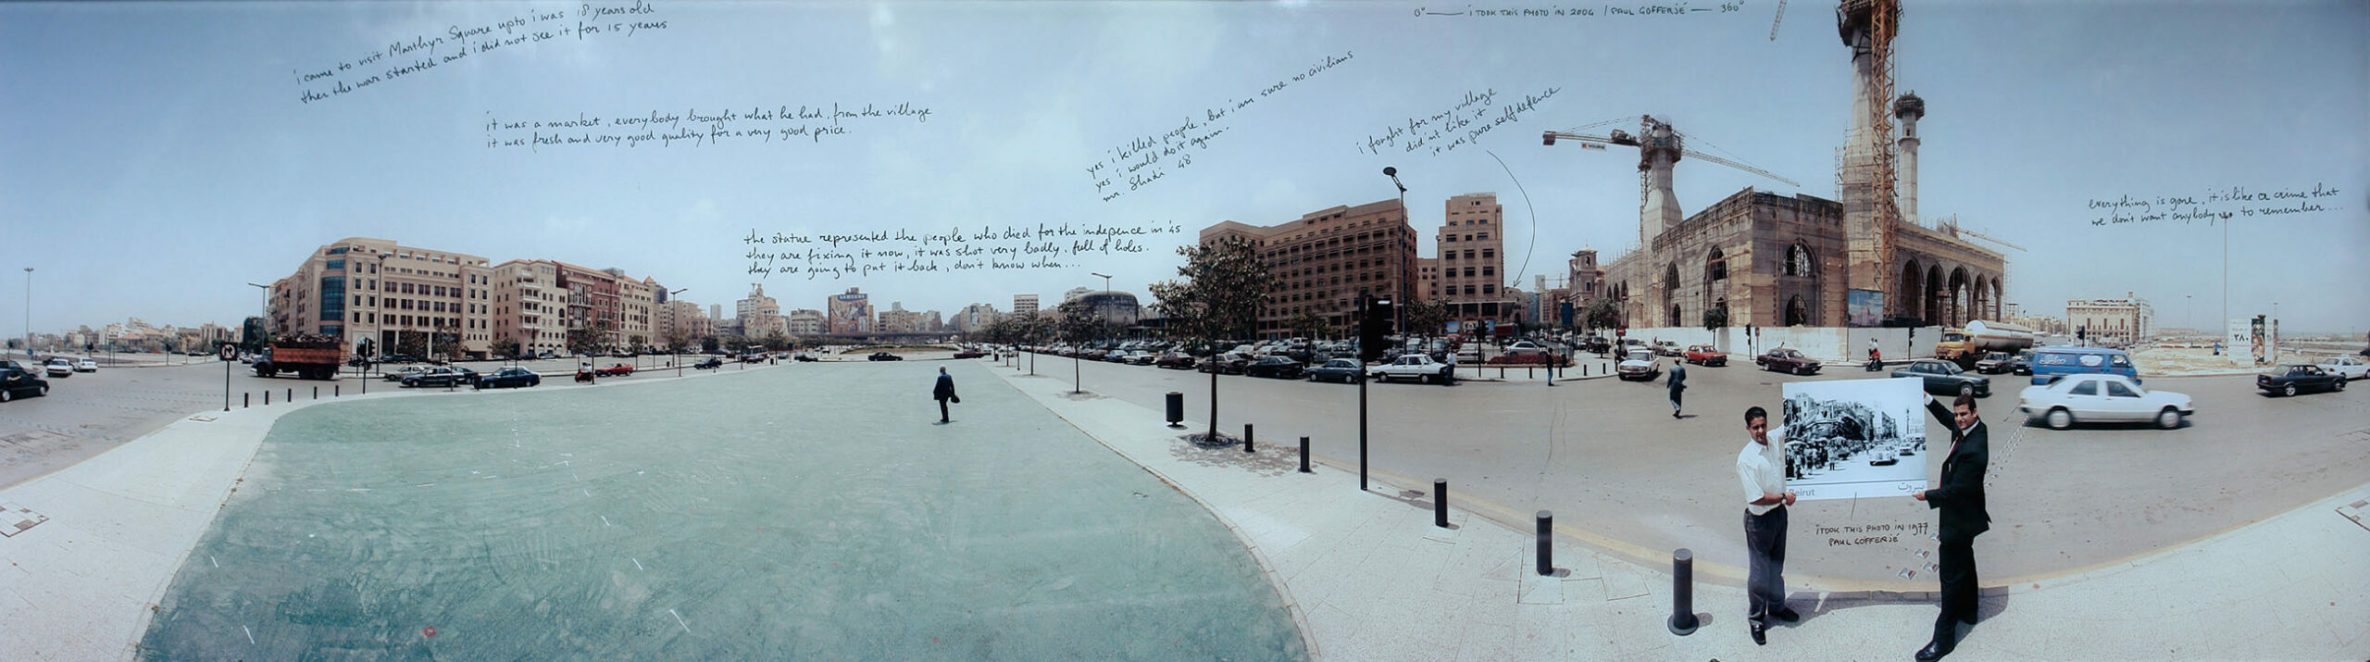 i came to visit Marthyr Square upto i was 18 years old
then the war started and i did not see it for 15 years
it was a market, everybody brought what he had, from the village
it was fresh and very good quality for a very good price.
the statue represented the people who died for the indepence in '45
they are fixing it now, it was shot very badly, full of holes.
they are going to put it back, don't know when...
yes i killed people, but i am sure no civilians
yes i would do it again.
mr. Shadi 48
i fought for my village
did'nt like it
it was pure self defence
0° i TOOK THIS PHOTO IN 2004 / PAUL GOFFERJÉ 360°
everything is gone, it is like a crime that
we don't want anybody to remember...
SAMSUNG
Beirut
بيروت
i TOOK THIS PHOTO IN 1977
PAUL GOFFERJÉ
٢٨٠